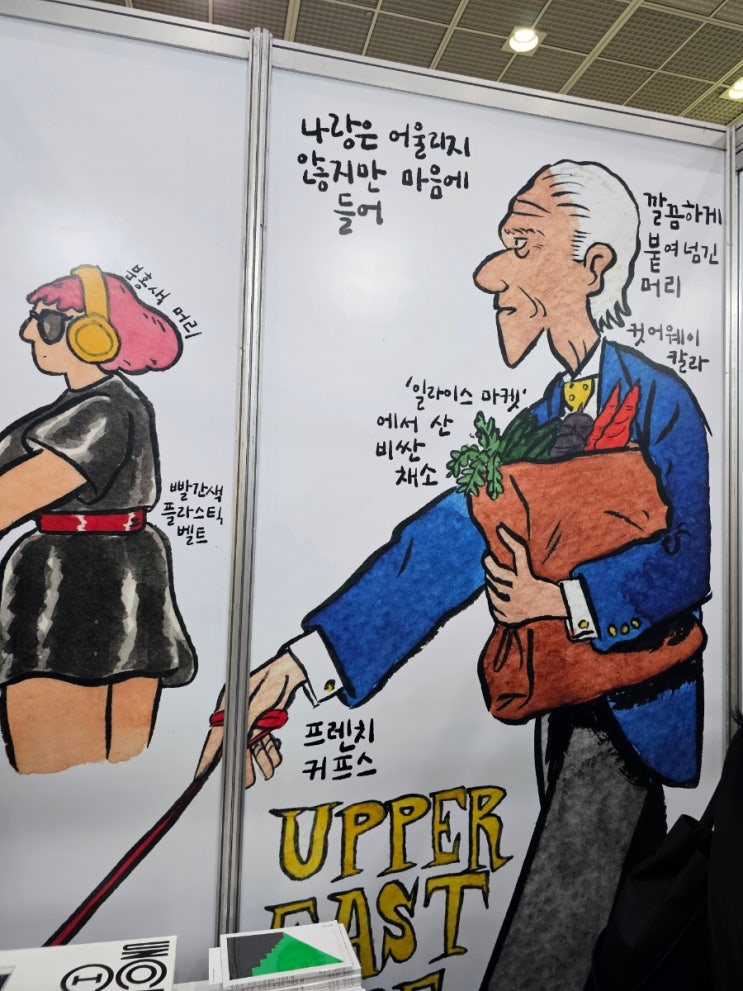 나랑은 어울리지
않지만 마음에
들어
깔끔하게
붙여넘긴
머리
컷어웨이
칼라
분홍색 머리
'일라이스 마켓'
에서 산
비싼
채소
빨간색
플라스틱
벨트
프렌치
커프스
UPPER
EAST